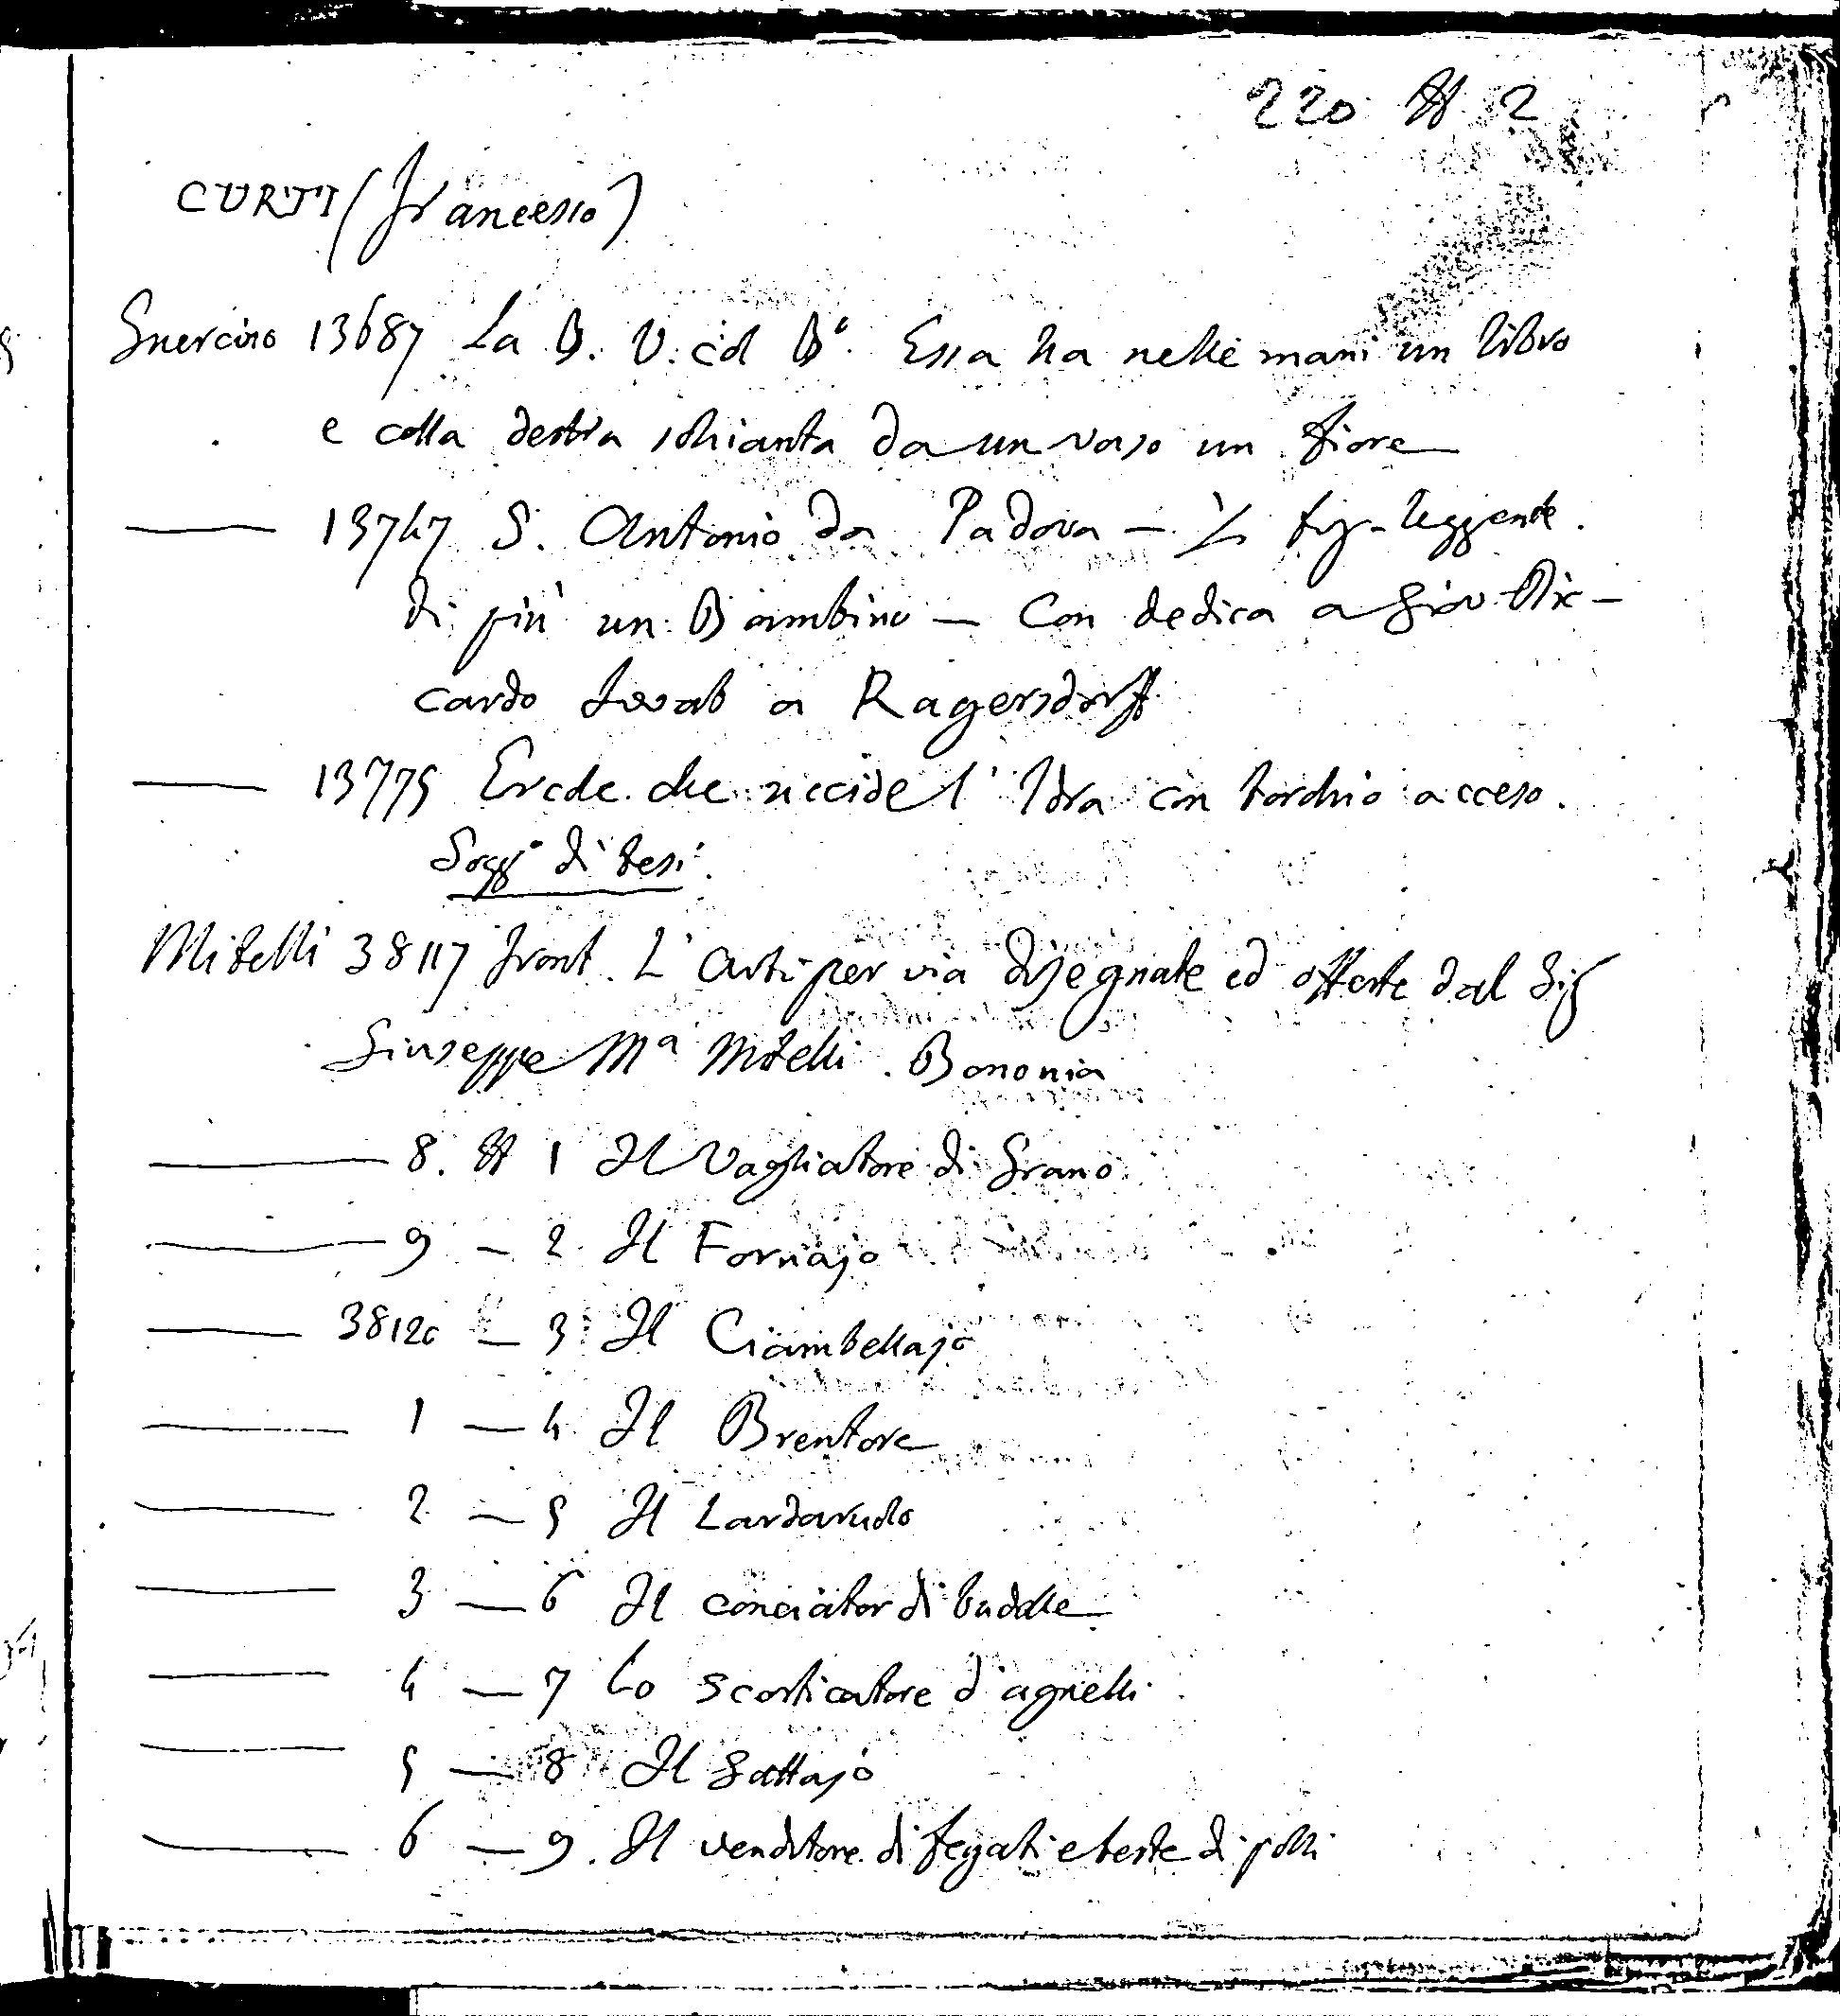 220 # 2
CURTI (Francesco)
Guercino 13687 La B. V. col B.º Essa ha nelle mani un libro
e colla destra schianta da un vaso un fiore
— 13747 S. Antonio da Padova — ½ fig. leggente.
Di più un Bambino — Con dedica a Giov. Ric-
cardo a Ragersdorff
— 13775 Ercole che uccide l'Idra con torchio acceso.
Sogg.º di tesi.
Mitelli 38117 Front. L'Arti per via disegnate ed offerte dal Sig
Giuseppe Mª Mitelli. Bononia
— 8. # 1 Il Vagliatore di Grano
— 9 — 2 Il Fornajo
— 38120 — 3 Il Ciambellajo
— 1 — 4 Il Brentore
— 2 — 5 Il Lardaruolo
— 3 — 6 Il conciator di budelle
— 4 — 7 Lo scorticatore d'agnelli
— 5 — 8 Il Gattajo
— 6 — 9. Il venditore di fegati e teste di polli